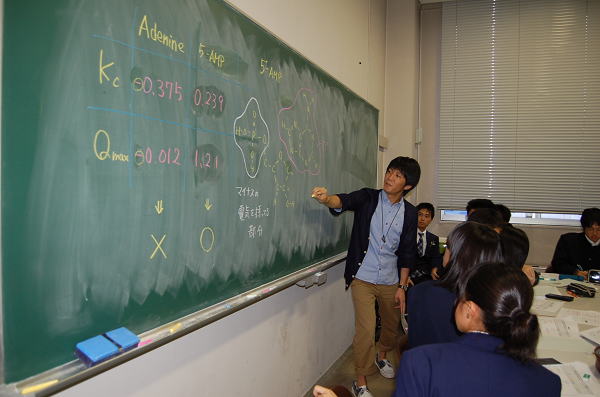 Adenine 5'-AMP 5'-AMP
Kc ⊖0.375 0.239
Qmax ⊖0.012 1.21
⇓ ⇓
× ○
マイナスの
電気を持っている
部分